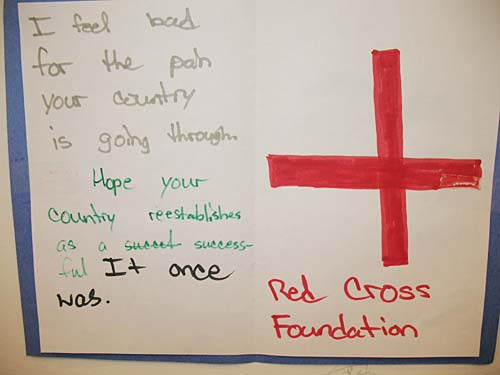 I feel bad
for the pain
your country
is going through.
Hope your
country reestablishes
as a succet success-
ful It once
was.
Red Cross
Foundation